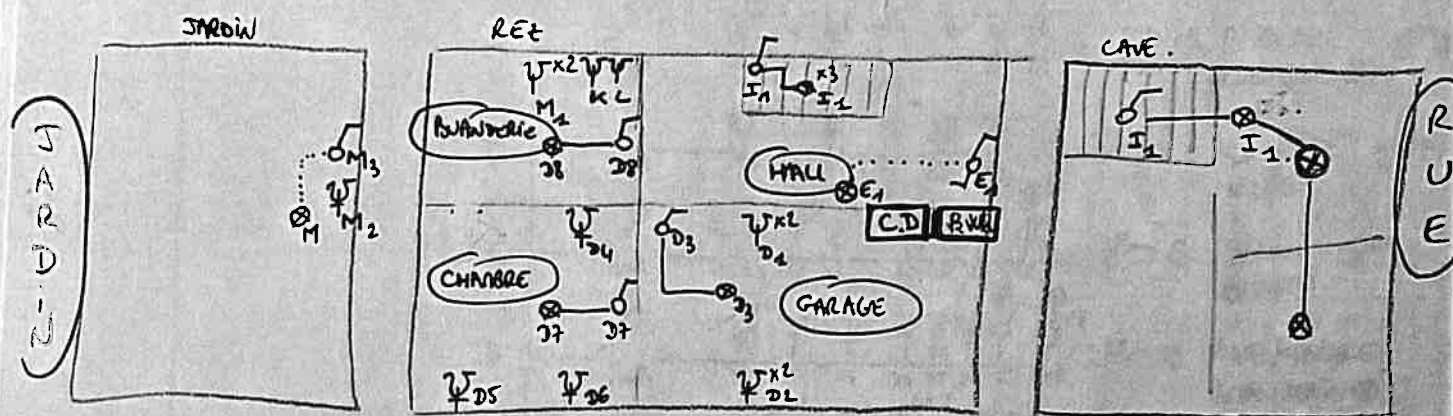 JARDIN
REZ
CAVE.
JARDIN
M3
M2
M
x2
M1
K L
BUANDERIE
D8
D8
I1
x3
I1
HALL
E1
E1
C.D
D4
D3
x2
D1
CHAMBRE
D7
D7
D3
GARAGE
D5
D6
x2
D2
I1
I1.
RUE